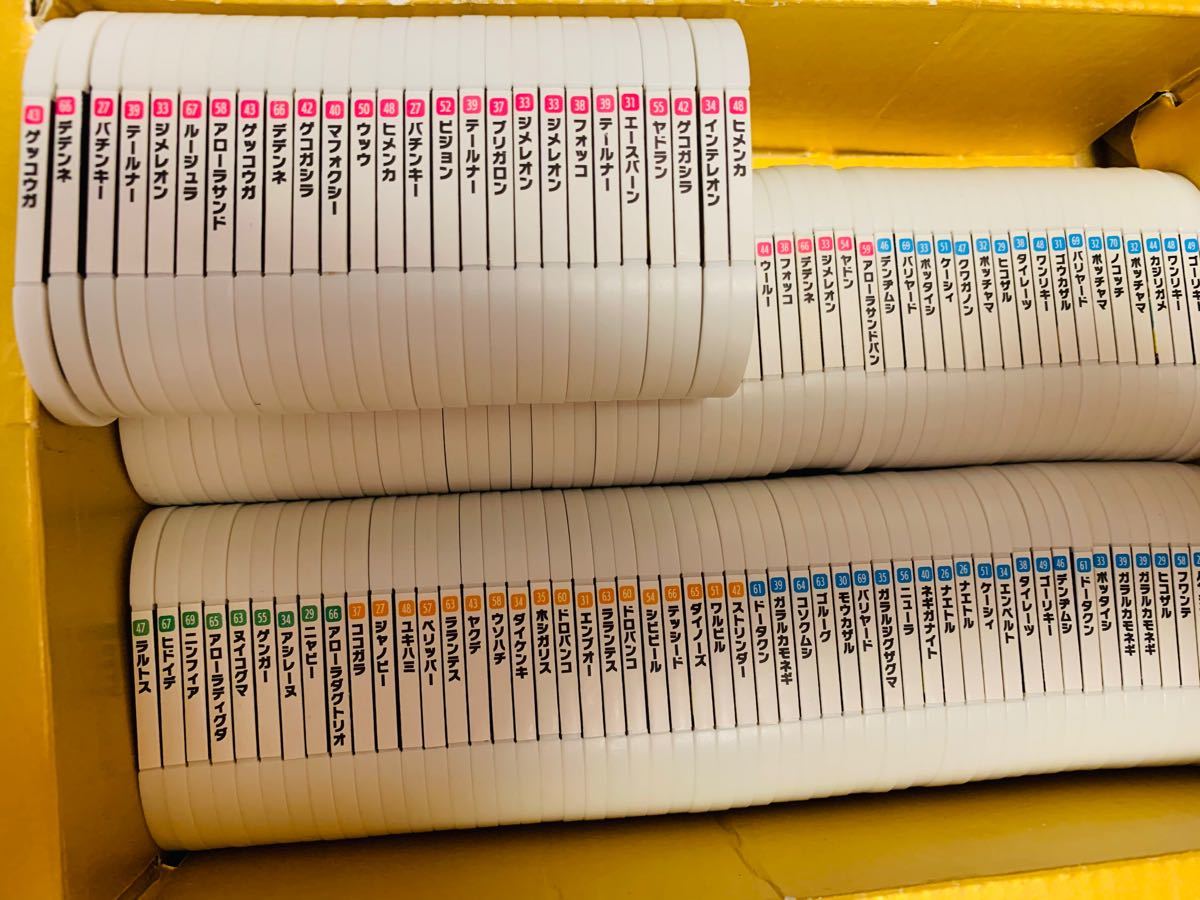 43 ゲッコウガ
66 デデンネ
27 バチンキー
39 テールナー
33 ジメレオン
67 ルージュラ
58 アローラサンド
43 ゲッコウガ
66 デデンネ
42 ゲコガシラ
40 マフォクシー
50 ウッウ
48 ヒメンカ
27 バチンキー
52 ピジョン
39 テールナー
37 ブリガロン
33 ジメレオン
33 ジメレオン
38 フォッコ
39 テールナー
31 エースバーン
55 ヤドラン
42 ゲコガシラ
34 インテレオン
48 ヒメンカ
44 ウールー
38 フォッコ
66 デデンネ
33 ジメレオン
54 ヤドン
59 アローラサンドパン
46 デンヂムシ
69 バリヤード
33 ポッタイシ
51 ケーシィ
47 クワガノン
32 ポッチャマ
29 ヒコザル
38 タイレーツ
48 ワンリキー
31 ゴウカザル
69 バリヤード
32 ポッチャマ
70 ノコッチ
32 ポッチャマ
44 カジリガメ
48 ワンリキー
49 ゴーリキ
47 ラルトス
67 ヒドイデ
69 ニンフィア
65 アローラディグダ
63 ヌイコグマ
55 ゲンガー
34 アシレーヌ
29 ニャビー
66 アローラダグトリオ
37 ココガラ
27 ジャノビー
48 ユキハミ
57 ペリッパー
63 ラランテス
43 ヤクデ
58 ウソハチ
34 ダイケンキ
35 ホシガリス
60 ドロバンコ
31 エンブオー
63 ラランテス
60 ドロバンコ
54 シビビール
66 テッシード
65 ダイノーズ
51 ワルビル
42 ストリンダー
61 ドータクン
39 ガラルカモネギ
64 コソクムシ
63 ゴルーグ
30 モウカザル
69 バリヤード
35 ガラルジグザグマ
56 ニューラ
40 ネギガナイト
26 ナエトル
26 ナエトル
51 ケーシィ
34 エンペルト
38 タイレーツ
49 ゴーリキー
46 デンヂムシ
61 ドータクン
33 ポッタイシ
39 ガラルカモネギ
39 ガラルカモネギ
29 ヒコザル
58 フワンテ